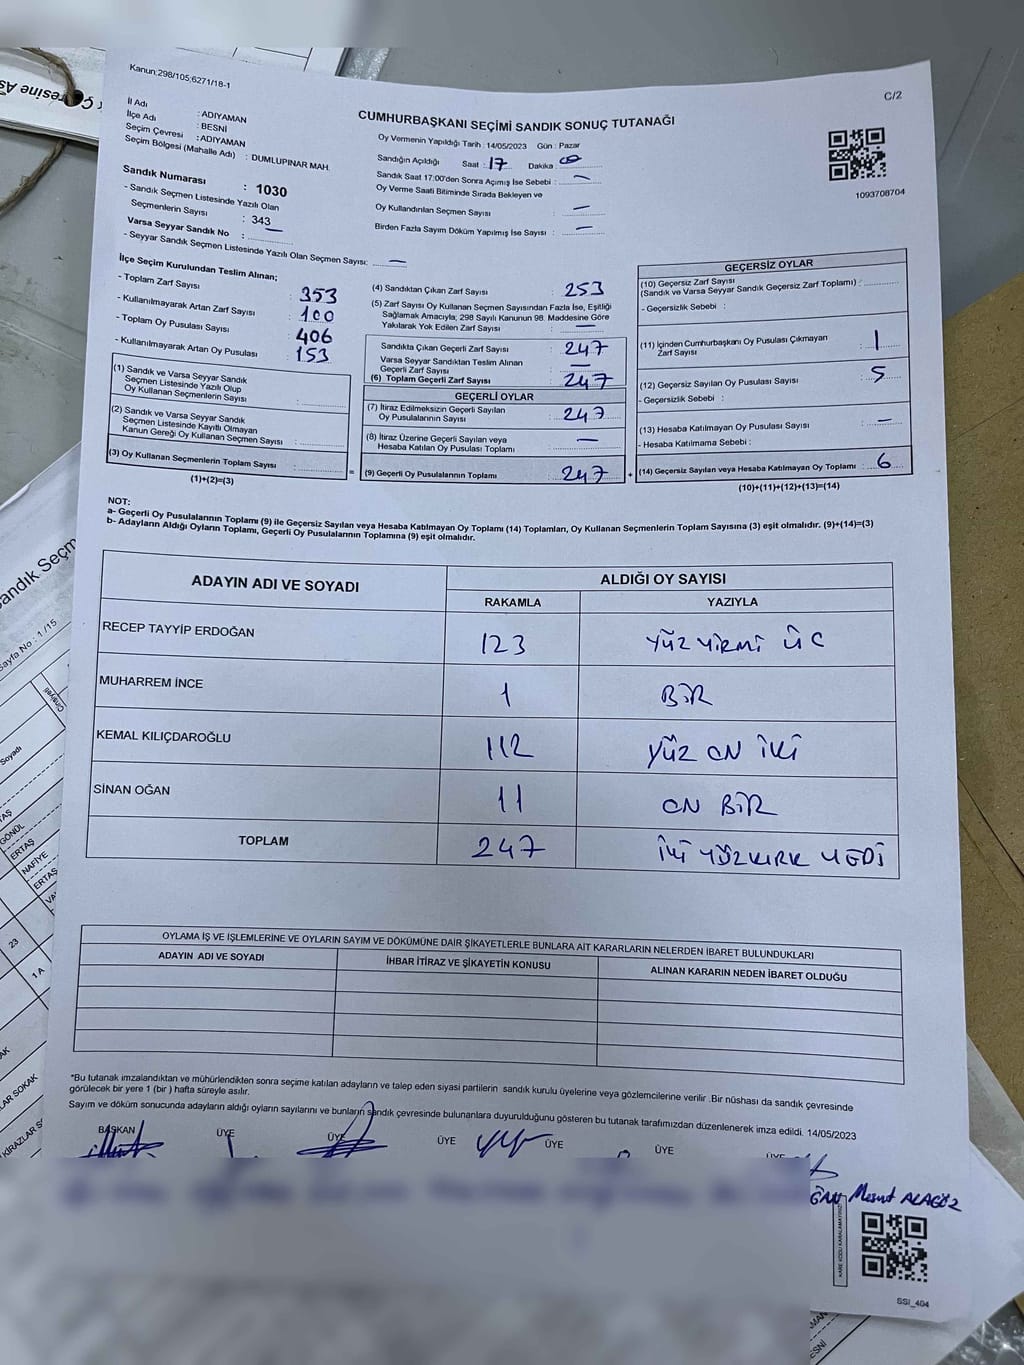 Kanun;298/105;6271/18-1
C/2
İl Adı : ADIYAMAN
İlçe Adı : BESNİ
Seçim Çevresi : ADIYAMAN
Seçim Bölgesi (Mahalle Adı) : DUMLUPINAR MAH.
CUMHURBAŞKANI SEÇİMİ SANDIK SONUÇ TUTANAĞI
Oy Vermenin Yapıldığı Tarih : 14/05/2023 Gün : Pazar
Sandığın Açıldığı Saat : 17 Dakika : 00
Sandık Saat 17:00'den Sonra Açımış İse Sebebi : —
Oy Verme Saati Bitiminde Sırada Bekleyen ve
Oy Kullandırılan Seçmen Sayısı : —
Birden Fazla Sayım Döküm Yapılmış İse Sayısı : —
1093708704
Sandık Numarası : 1030
- Sandık Seçmen Listesinde Yazılı Olan
Seçmenlerin Sayısı : 343
Varsa Seyyar Sandık No : —
- Seyyar Sandık Seçmen Listesinde Yazılı Olan Seçmen Sayısı: —
İlçe Seçim Kurulundan Teslim Alınan;
- Toplam Zarf Sayısı : 353
- Kullanılmayarak Artan Zarf Sayısı : 100
- Toplam Oy Pusulası Sayısı : 406
- Kullanılmayarak Artan Oy Pusulası : 153
(1) Sandık ve Varsa Seyyar Sandık
Seçmen Listesinde Yazılı Olup
Oy Kullanan Seçmenlerin Sayısı :
(2) Sandık ve Varsa Seyyar Sandık
Seçmen Listesinde Kayıtlı Olmayan
Kanun Gereği Oy Kullanan Seçmen Sayısı :
(3) Oy Kullanan Seçmenlerin Toplam Sayısı :
(1)+(2)=(3)
(4) Sandıktan Çıkan Zarf Sayısı : 253
(5) Zarf Sayısı Oy Kullanan Seçmen Sayısından Fazla İse, Eşitliği
Sağlamak Amacıyla; 298 Sayılı Kanunun 98. Maddesine Göre
Yakılarak Yok Edilen Zarf Sayısı : —
Sandıkta Çıkan Geçerli Zarf Sayısı : 247
Varsa Seyyar Sandıktan Teslim Alınan
Geçerli Zarf Sayısı : —
(6) Toplam Geçerli Zarf Sayısı : 247
GEÇERLİ OYLAR
(7) İtiraz Edilmeksizin Geçerli Sayılan
Oy Pusulalarının Sayısı : 247
(8) İtiraz Üzerine Geçerli Sayılan veya
Hesaba Katılan Oy Pusulası Toplamı : —
= (9) Geçerli Oy Pusulalarının Toplamı : 247
GEÇERSİZ OYLAR
(10) Geçersiz Zarf Sayısı
(Sandık ve Varsa Seyyar Sandık Geçersiz Zarf Toplamı) :
- Geçersizlik Sebebi :
(11) İçinden Cumhurbaşkanı Oy Pusulası Çıkmayan
Zarf Sayısı : 1
(12) Geçersiz Sayılan Oy Pusulası Sayısı : 5
- Geçersizlik Sebebi :
(13) Hesaba Katılmayan Oy Pusulası Sayısı : —
- Hesaba Katılmama Sebebi :
+ (14) Geçersiz Sayılan veya Hesaba Katılmayan Oy Toplamı : 6
(10)+(11)+(12)+(13)=(14)
NOT:
a- Geçerli Oy Pusulalarının Toplamı (9) ile Geçersiz Sayılan veya Hesaba Katılmayan Oy Toplamı (14) Toplamları, Oy Kullanan Seçmenlerin Toplam Sayısına (3) eşit olmalıdır. (9)+(14)=(3)
b- Adayların Aldığı Oyların Toplamı, Geçerli Oy Pusulalarının Toplamına (9) eşit olmalıdır.
ADAYIN ADI VE SOYADI ALDIĞI OY SAYISI
RAKAMLA YAZIYLA
RECEP TAYYİP ERDOĞAN 123 YÜZ YİRMİ ÜC
MUHARREM İNCE 1 BİR
KEMAL KILIÇDAROĞLU 112 YÜZ ON İKİ
SİNAN OĞAN 11 ON BİR
TOPLAM 247 İKİ YÜZ KIRK YEDİ
OYLAMA İŞ VE İŞLEMLERİNE VE OYLARIN SAYIM VE DÖKÜMÜNE DAİR ŞİKAYETLERLE BUNLARA AİT KARARLARIN NELERDEN İBARET BULUNDUKLARI
ADAYIN ADI VE SOYADI İHBAR İTİRAZ VE ŞİKAYETİN KONUSU ALINAN KARARIN NEDEN İBARET OLDUĞU
*Bu tutanak imzalandıktan ve mühürlendikten sonra seçime katılan adayların ve talep eden siyasi partilerin sandık kurulu üyelerine veya gözlemcilerine verilir .Bir nüshası da sandık çevresinde
görülecek bir yere 1 (bir ) hafta süreyle asılır.
Sayım ve döküm sonucunda adayların aldığı oyların sayılarını ve bunların sandık çevresinde bulunanlara duyurulduğunu gösteren bu tutanak tarafımızdan düzenlenerek imza edildi. 14/05/2023
BAŞKAN ÜYE ÜYE ÜYE ÜYE ÜYE ÜYE
Mesut ALAGÖZ
KARE KODU KARALAMAYINIZ
SSI_404
Sandık Seçm
Sayfa No : 1 /15
Cinsiyeti
Soyadı
GÖNÜL
ERTAŞ
NAFİYE
ERTAŞ
23
1 A
LAR SOKAK
KİRAZLAR S